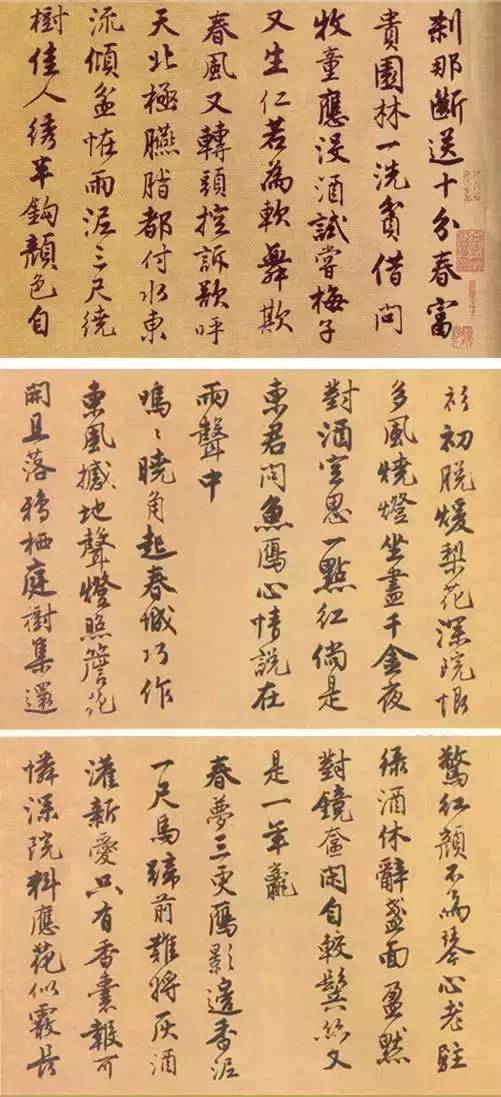 刹那斷送十分春富
貴園林一洗貧借問
牧童應沒酒試嘗梅子
又生仁若為軟舞欺
春風又轉頭控訴欲呼
天北極臙脂都付水東
流傾盆怪雨泥三尺繞
樹佳人綉半鈎顏色自
衫初脫煖梨花深院恨
多風燒燈坐盡千金夜
對酒空思一點紅倘是
東君問魚鴈心情說在
雨聲中
嗚〻曉角起春城巧作
東風撼地聲燈照簷花
開且落鴉栖庭樹集還
驚紅顏不為琴心老駐
綠酒休辭盞面盈默
對鏡奩閑自較鬢絲又
是一年虧
春夢三更鴈影邊香泥
一尺馬蹄前難將灰酒
灌新愛只有香囊報可
憐深院料應花似霰長